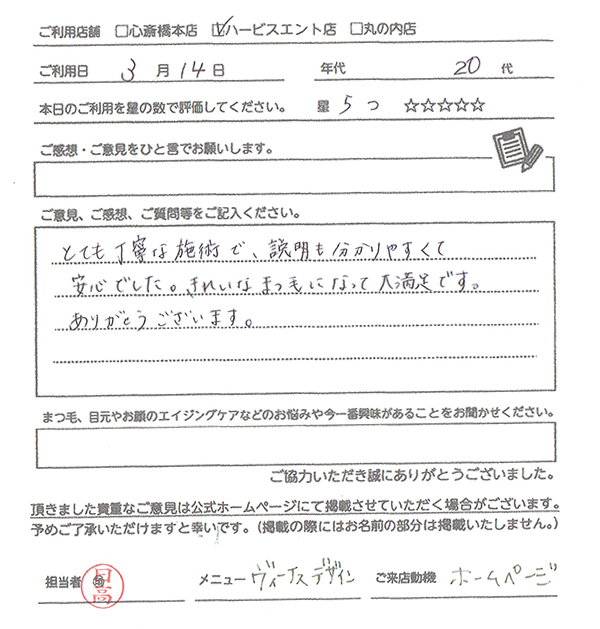 ご利用店舗 □心斎橋本店 ☑ハービスエント店 □丸の内店
ご利用日 3月14日 年代 20代
本日のご利用を星の数で評価してください。 星 5つ ☆☆☆☆☆
ご感想・ご意見をひと言でお願いします。
ご意見、ご感想、ご質問等をご記入ください。
とても丁寧な施術で、説明も分かりやすくて
安心でした。きれいなまつ毛になって大満足です。
ありがとうございます。
まつ毛、目元やお顔のエイジングケアなどのお悩みや今一番興味があることをお聞かせください。
ご協力いただき誠にありがとうございました。
頂きました貴重なご意見は公式ホームページにて掲載させていただく場合がございます。
予めご了承いただけますと幸いです。（掲載の際にはお名前の部分は掲載いたしません。）
担当者 日高 メニュー ヴィーナスデザイン ご来店動機 ホームページ